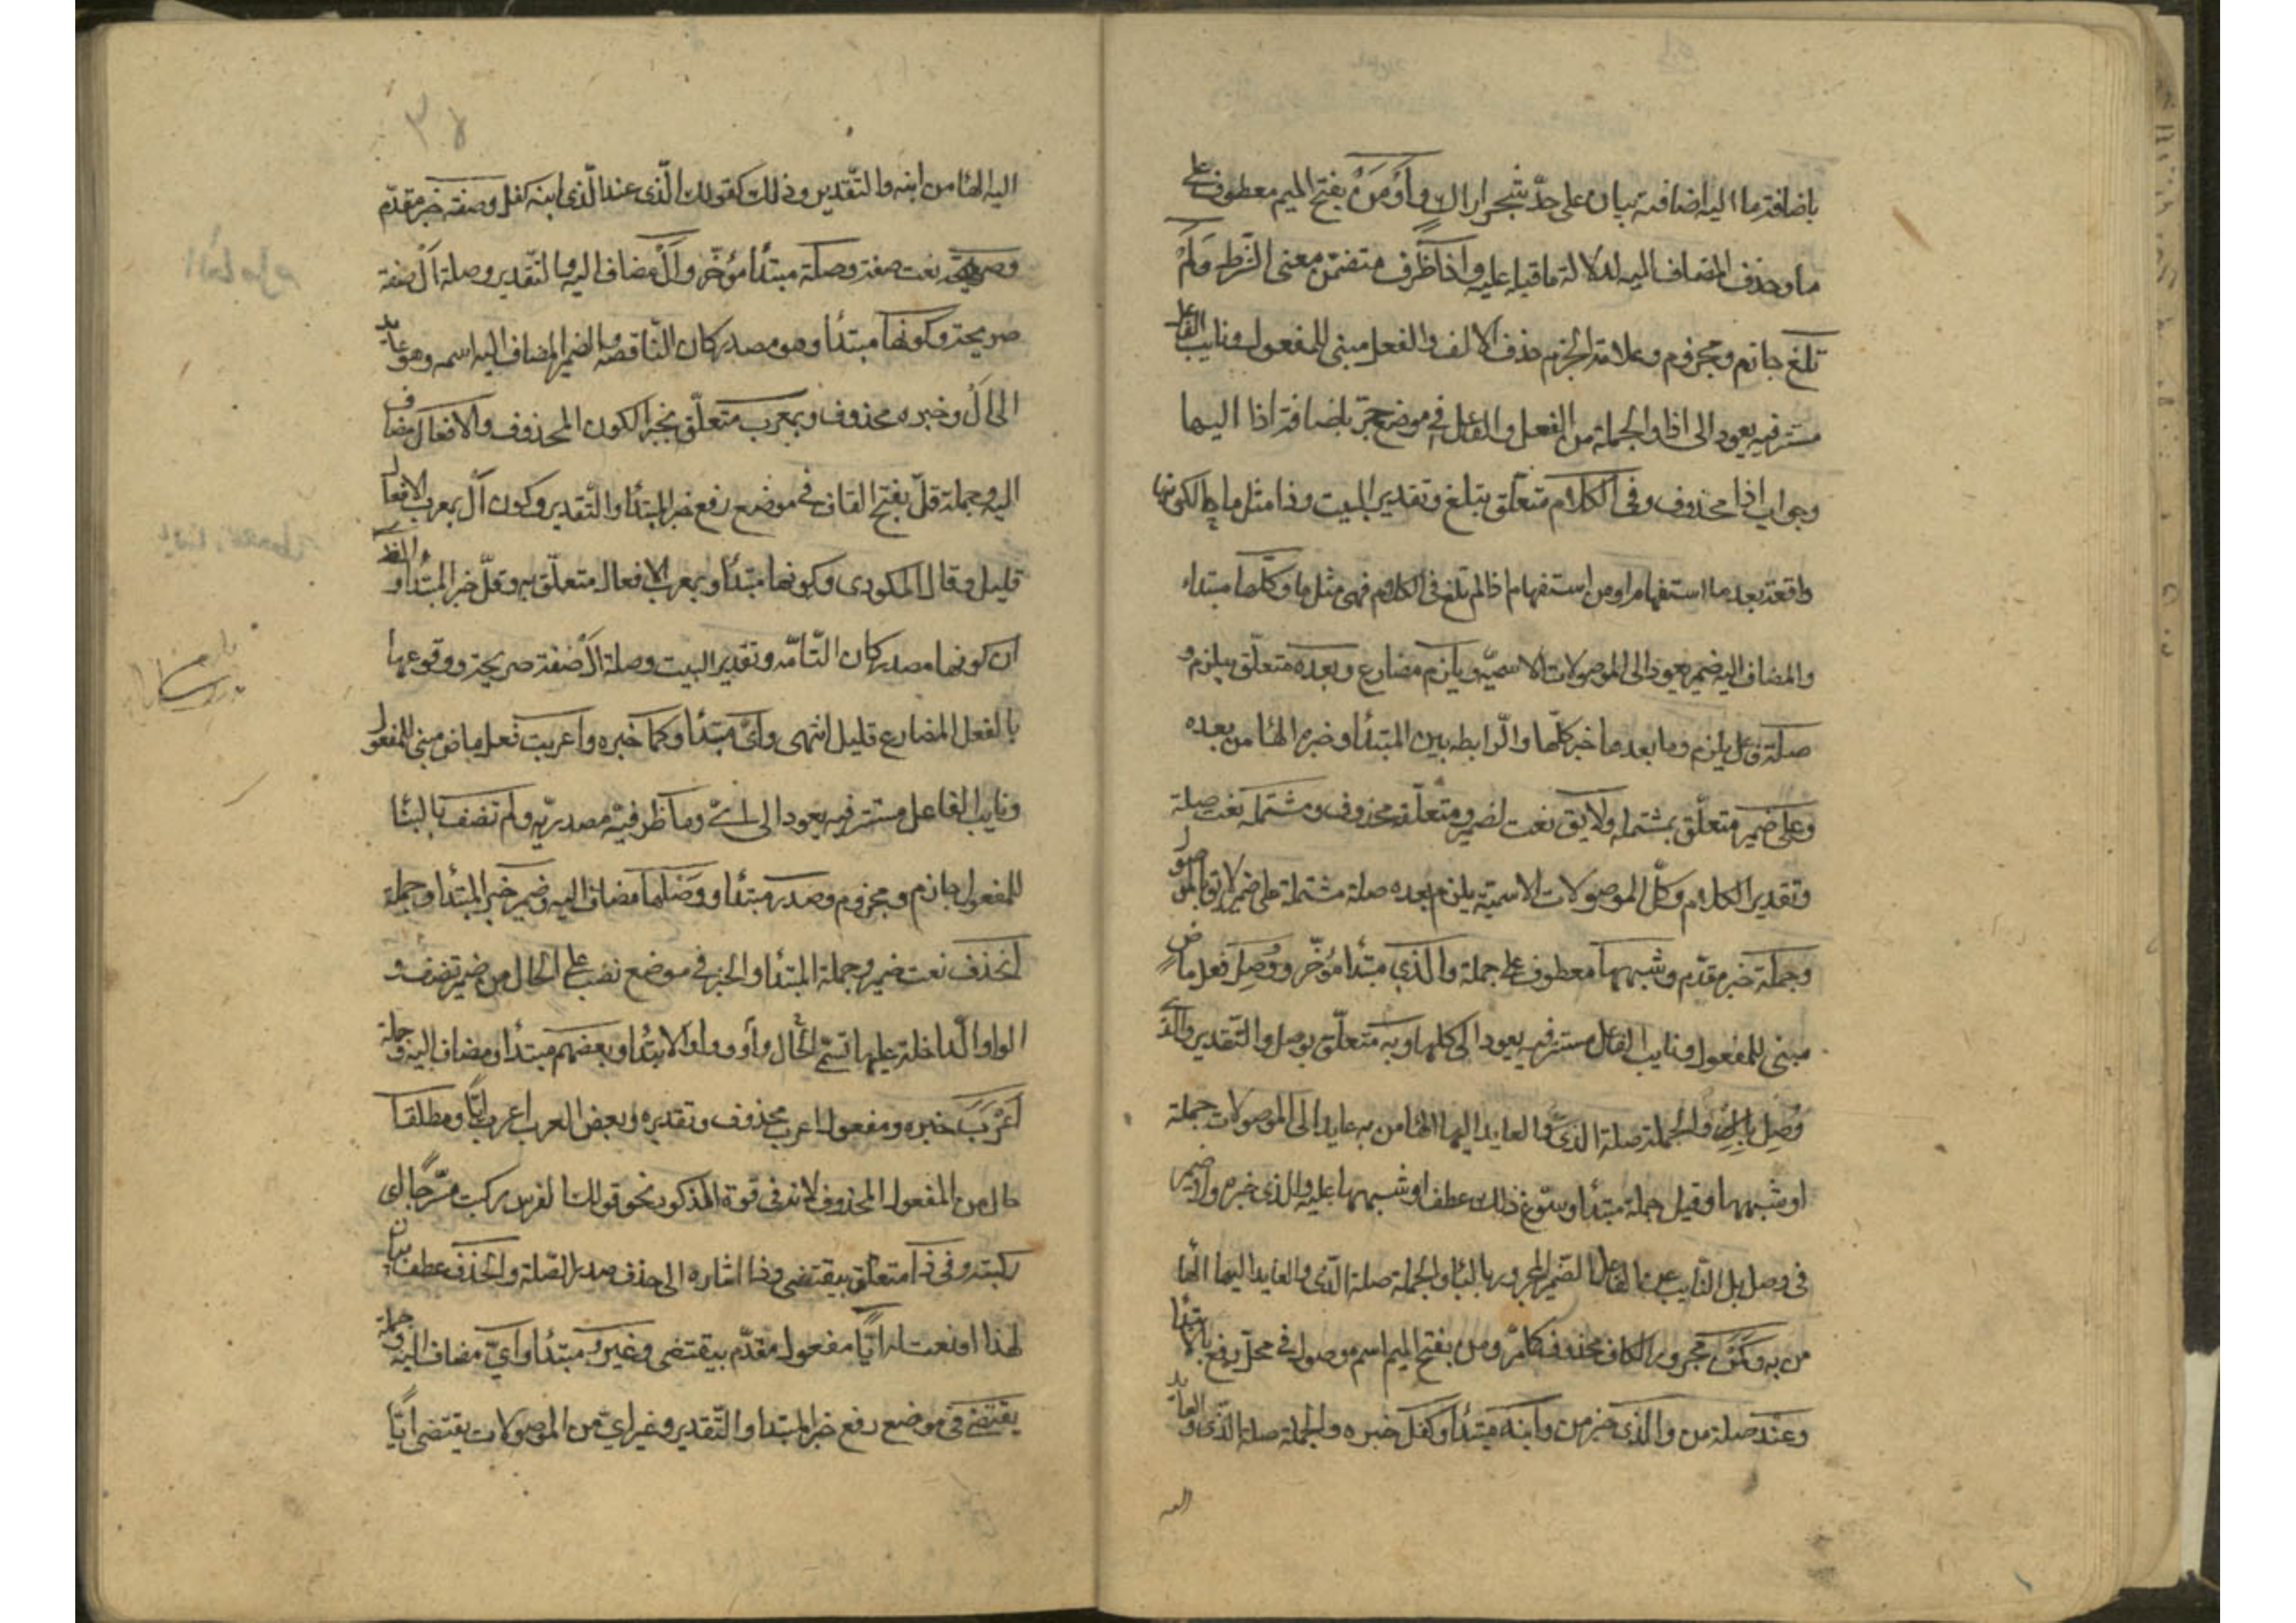 باضافة ما اليه اضافة بيان على حدّ شجر اراك وأوْ مَنْ بفتح الميم معطوف على
ما وحذف المضاف اليه لدلالة ما قبله عليه واذا ظرف متضمّن معنى الشرط ولَمْ
تلغ جازم ومجزوم وعلامة الجزم حذف الالف والفعل مبنى للمفعول ونايب الفاعل
مستتر فيه يعود الى اذا والجملة من الفعل والفاعل فى موضع جرّ باضافة اذا اليها
وجواب اذا محذوف وفى الكلام متعلّق بتلغ وتقدير البيت وذا مثل ما حالكونها
واقعة بعد ما استفهام او من استفهام اذا لم تلغ فى الكلام فهى مثل ما وكلّها مبتداء
والمضاف اليه ضمير يعود الى الموصولات الاسميّه ويلزم مضارع وبعده متعلّق بيلزم و
صلة فاعل يلزم وما بعدها خبر كلّها والرّابطه بين المبتدأ وخبره الهاء من بعده
وعلى ضمير متعلّق بمشتمله ولايق نعت لضمير ومتعلّقه محذوف ومشتمله نعت صلة
وتقدير الكلام وكلّ الموصولات الاسميّه يلزم بعده صلة مشتملة على ضمير لايق بالموصول
وجملة خبر مقدّم وشبهها معطوف على جملة والّذي مبتدأ مؤخّر ووُصِلَ فعل ماضٍ
مبنى للمفعول ونايب الفاعل مستتر فيه يعود الى كلها وبه متعلّق بوصل والتّقدير والّذى
وُصِلَ به والجملة صلة الّذى والعايد اليها الهاء من به عايد الى الموصولات جملة
او شبهها وقيل جملة مبتدأ وسوّغ ذلك عطف او شبهها عليه والذى خبره ولا ضمير
فى وصل بل النّايب عن الفاعل الضّمير المجرور بالباء والجملة صلة الّذى والعايد اليها الهاء
من به وكَمَنْ مجرور الكاف محذوف كما مرّ ومن بفتح الميم اسم موصول فى محلّ رفع بالابتدا
وعند صلة من والّذى خبر من وابنه مبتدأ وكفل خبره والجملة صلة الّذى والعايد
اليه
اليه الهاء من ابنه والتّقدير وذلك كقولك الّذى عند الّذى ابنه كفل وصفة خبر مقدّم
وصريحة نعت صفة وصلة مبتدأ مؤخّر وأل مضاف اليه والتّقدير وصلة أل صفة
صريحة وكونها مبتدأ وهو مصدر كان النّاقصه والضمير المضاف اليه اسمه وهو عايد
الى أل وخبره محذوف وبمعرب متعلّق بخبر الكون المحذوف والافعال مضاف
اليه وجملة قلّ بفتح القاف فى موضع رفع خبر المبتدأ والتّقدير وكون أل بمعرب الافعال
قليل وقال المكودى وكونها مبتدأ وبمعرب الافعال متعلّق به وقلّ خبر المبتدأ و
ان كونها مصدر كان التّامّه وتقدير البيت وصلة أل صفة صريحة ووقوعها
بالفعل المضارع قليل انتهى وأىّ مبتدأ وكما خبره واعربت فعل ماض مبنى للمفعول
ونايب الفاعل مستتر فيه يعود الى اىّ وما ظرفيّه مصدريّه ولم تضف بالبناء
للمفعول جازم ومجزوم وصدر مبتدأ ووصلها مضاف اليه وضمير خبر المبتدأ وجملة
انحذف نعت ضمير وجملة المبتدأ والخبر فى موضع نصب على الحال من ضمير تضف و
الواو الدّاخلة عليها تسمّى الحال وواو الابتدا وبعضهم مبتدأ ومضاف اليه وجملة
اَعْرَبَ خبره ومفعول اعرب محذوف وتقديره وبعض العرب اعرب أيّا ومطلقا
حال من المفعول المحذوف لانه فى قوة المذكور نحو قولك الفرس ركبت مسرّجا اى
ركبته وفى ذا متعلّق بيقتضى وذا اشاره الى حذف صدر الصّلة والحذف عطف بيان
لهذا او نعت له وأيّا مفعول مقدّم بيقتضى وغيرُ مبتدأ وايّ مضاف اليه وجملة
يقتضى فى موضع رفع خبر المبتدا والتّقدير وغير ايّ من الموصولات يقتضى ايّا